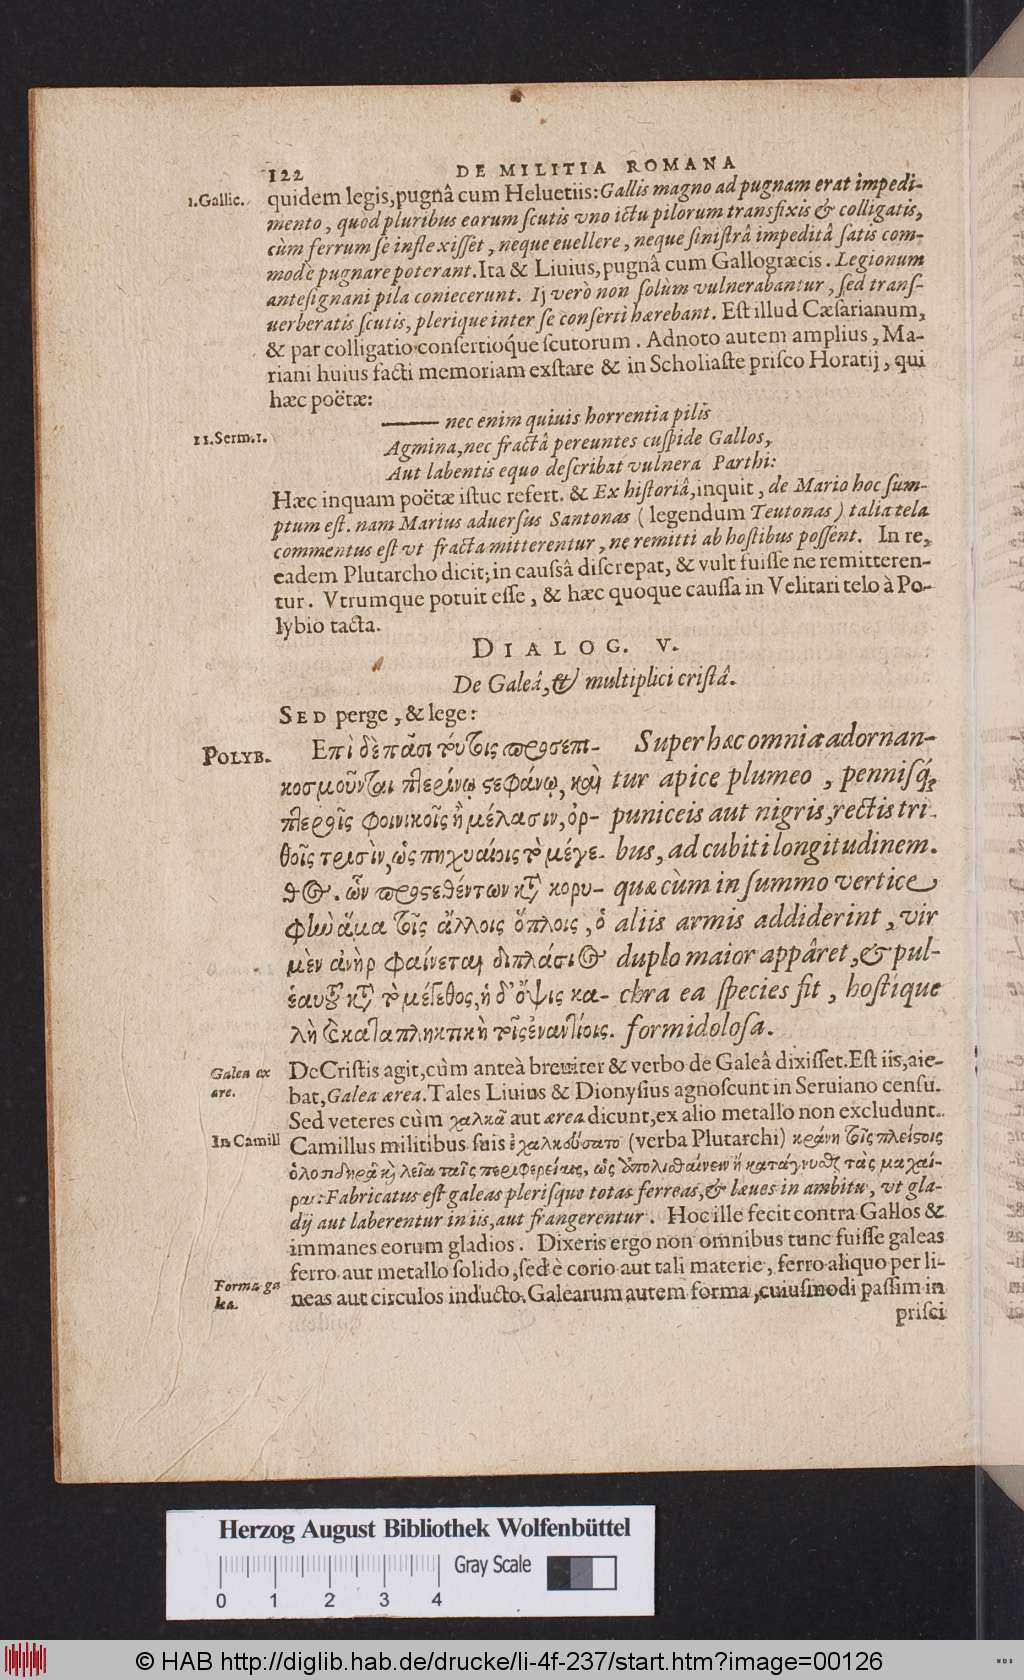 122 DE MILITIA ROMANA
1.Gallic. quidem legis, pugnâ cum Heluetiis: Gallis magno ad pugnam erat impedi-
mento, quod pluribus eorum ſcutis vno ictu pilorum transfixis & colligatis,
cùm ferrum ſe inflexiſſet, neque euellere, neque ſiniſtrâ impeditâ ſatis com-
modè pugnare poterant. Ita & Liuius, pugnâ cum Gallogræcis. Legionum
anteſignani pila coniecerunt. Ij verò non ſolùm vulnerabantur, ſed tranſ-
uerberatis ſcutis, plerique inter ſe conſerti hærebant. Eſt illud Cæſarianum,
& par colligatio conſertioq́ue ſcutorum. Adnoto autem amplius, Ma-
riani huius facti memoriam exſtare & in Scholiaſte priſco Horatij, qui
hæc poëtæ:
—— nec enim quiuis horrentia pilis
11.Serm.1. Agmina, nec fractâ pereuntes cuſpide Gallos,
Aut labentis equo deſcribat vulnera Parthi:
Hæc inquam poëtæ iſtuc refert. & Ex hiſtoriâ, inquit, de Mario hoc ſum-
ptum eſt. nam Marius aduerſus Santonas (legendum Teutonas) talia tela
commentus eſt vt fracta mitterentur, ne remitti ab hoſtibus poſſent. In re,
eadem Plutarcho dicit; in cauſſâ diſcrepat, & vult fuiſſe ne remitteren-
tur. Vtrumque potuit eſſe, & hæc quoque cauſſa in Velitari telo à Po-
lybio tacta.
DIALOG. V.
De Galeâ, & multiplici criſtâ.
SED perge, & lege:
POLYB. Ἐπὶ δὲ πᾶσι τούτοις προσεπι-
κοσμοῦνται πτερίνῳ στεφάνῳ, καὶ
πτεροῖς φοινικοῖς ἢ μέλασιν, ὀρ-
θοῖς τρισὶν, ὡς πηχυαίοις τὸ μέγε-
θος. ὧν προστεθέντων κατὰ κορυ-
φὴν ἅμα τοῖς ἄλλοις ὅπλοις, ὁ
μὲν ἀνὴρ φαίνεται διπλάσιος
ἑαυτοῦ κατὰ τὸ μέγεθος, ἡ δ' ὄψις κα-
λὴ καὶ καταπληκτικὴ τοῖς ἐναντίοις.
Super hæc omnia adornan-
tur apice plumeo, penniſq́;
puniceis aut nigris, rectis tri-
bus, ad cubiti longitudinem.
quæ cùm in ſummo vertice
aliis armis addiderint, vir
duplo maior appâret, & pul-
chra ea ſpecies fit, hoſtíque
formidoloſa.
Galea ex ære. De Criſtis agit, cùm anteà breuiter & verbo de Galeâ dixiſſet. Eſt iis, aie-
bat, Galea ærea. Tales Liuius & Dionyſius agnoſcunt in Seruiano cenſu.
Sed veteres cùm χαλκᾶ aut ærea dicunt, ex alio metallo non excludunt.
In Camill Camillus militibus ſuis ἐχαλκεύσατο (verba Plutarchi) κράνη τοῖς πλείστοις
ὁλοσιδηρᾶ καὶ λεῖα ταῖς περιφερείαις, ὡς ἀπολισθαίνειν ἢ κατάγνυσθαι τὰς μαχαί-
ρας: Fabricatus eſt galeas pleriſque totas ferreas, & læues in ambitu, vt gla-
dij aut laberentur in iis, aut frangerentur. Hoc ille fecit contra Gallos &
immanes eorum gladios. Dixeris ergo non omnibus tunc fuiſſe galeas
ferro aut metallo ſolido, ſed è corio aut tali materie, ferro aliquo per li-
Forma galeæ. neas aut circulos inducto. Galearum autem forma, cuiuſmodi paſſim in
priſci
Herzog August Bibliothek Wolfenbüttel
Gray Scale
0 1 2 3 4
© HAB http://diglib.hab.de/drucke/li-4f-237/start.htm?image=00126